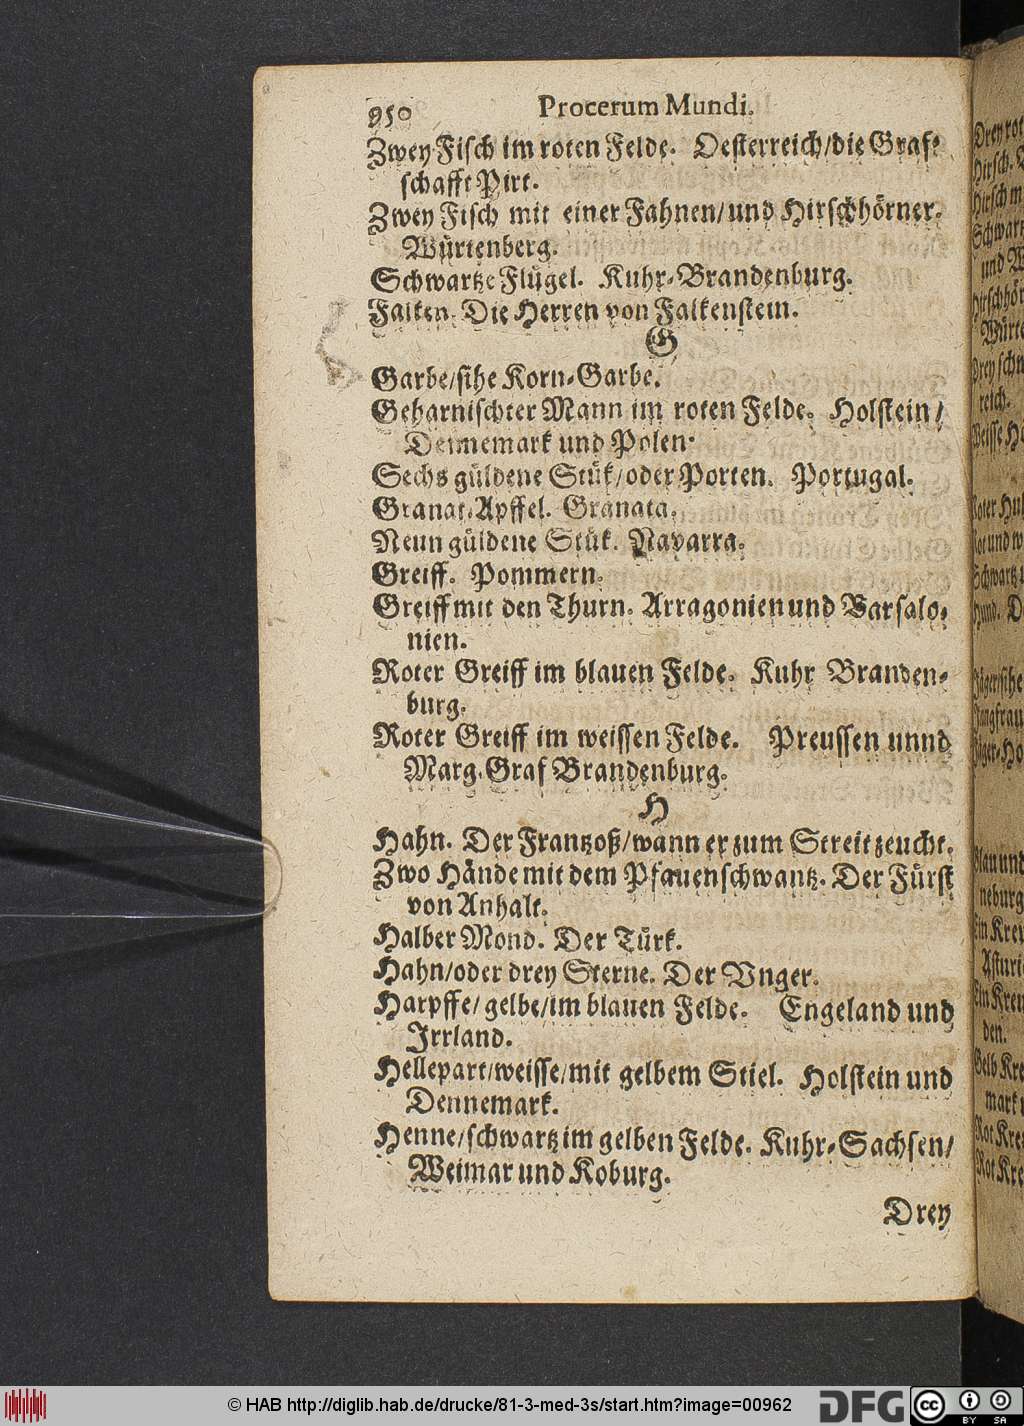 950 Procerum Mundi.
Zwey Fisch im roten Felde. Oesterreich/die Graf-
schafft Pirt.
Zwey Fisch mit einer Fahnen/und Hirschhörner.
Würtenberg.
Schwartze Flügel. Kuhr-Brandenburg.
Falken. Die Herren von Falkenstein.
G
Garbe/sihe Korn-Garbe.
Geharnischter Mann im roten Felde. Holstein/
Dennemark und Polen.
Sechs güldene Stük/oder Porten. Portugal.
Granat-Apffel. Granata.
Neun güldene Stük. Navarra.
Greiff. Pommern.
Greiff mit den Thurn. Arragonien und Barsalo-
nien.
Roter Greiff im blauen Felde. Kuhr Branden-
burg.
Roter Greiff im weissen Felde. Preussen unnd
Marg-Graf Brandenburg.
H
Hahn. Der Frantzoß/wann er zum Streit zeucht.
Zwo Hände mit dem Pfauenschwantz. Der Fürst
von Anhalt.
Halber Mond. Der Türk.
Hahn/oder drey Sterne. Der Vnger.
Harpffe/gelbe/im blauen Felde. Engeland und
Irrland.
Hellepart/weisse/mit gelbem Stiel. Holstein und
Dennemark.
Henne/schwartz im gelben Felde. Kuhr-Sachsen/
Weimar und Koburg.
Drey
© HAB http://diglib.hab.de/drucke/81-3-med-3s/start.htm?image=00962
DFG
cc BY SA